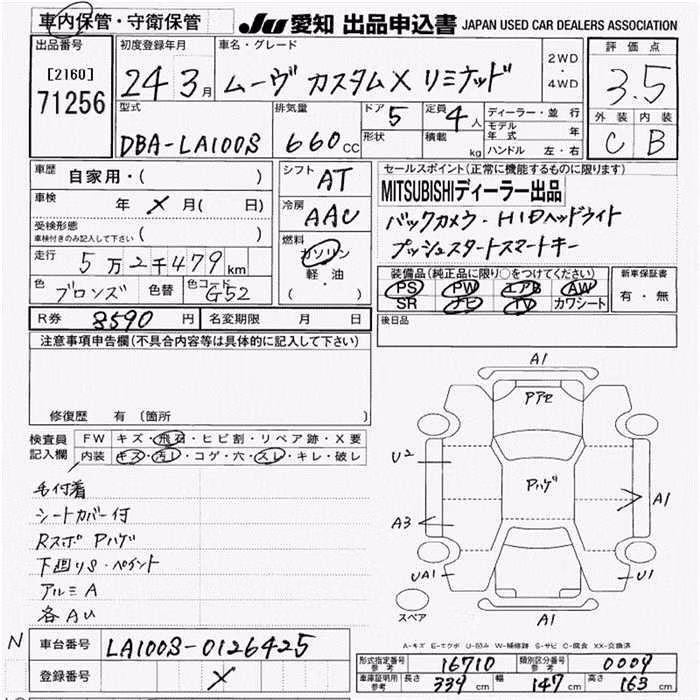 車内保管・守衛保管
JU 愛知 出品申込書 JAPAN USED CAR DEALERS ASSOCIATION
出品番号
[2160]
71256
初度登録年月
24 3月
車名・グレード
ムーヴ カスタムX リミテッド
2WD
・
4WD
評価点
3.5
外装 内装
C B
型式
DBA-LA100S
排気量
660cc
ドア 5
形状
定員 4人
積載 kg
ディーラー・並行
モデル年式 年
ハンドル 左・右
車歴 自家用・( )
車検 年 ✗ 月( 日)
受検形態
車検付きのみ記入して下さい ( )
走行 5万2千479km
色 ブロンズ 色替 色コード G52
シフト AT
冷房 AAC
燃料
ガソリン
軽・油
( ・ )
セールスポイント(正常に機能するものに限ります)
MITSUBISHIディーラー出品
バックカメラ・HIDヘッドライト
プッシュスタートスマートキー
装備品(純正品に限り○をつけてください)
PS PW エアB AW
SR ナビ TV カワシート
新車保証書
有・無
後日品
R券 8590円 名変期限 月 日
注意事項申告欄(不具合内容等は具体的に記入して下さい)
修復歴 有(箇所 )
検査員記入欄
FW キズ・飛石・ヒビ割・リペア跡・X要
内装 キズ・汚レ・コゲ・穴・スレ・キレ・破レ
毛付着
シートカバー付
RスポPハゲ
下廻りS・ペイント
アルミA
各AU
A1
Pアセ
U2
Pハゲ
A1
A3
UA1
U1
スペア
A1
A-キズ E-エクボ U-凹み W-補修跡 S-サビ C-腐食 XX-交換済
N
車台番号 LA100S-0126425
登録番号 ✗
形式指定番号 参考 16710 類別区分番号 参考 0004
車庫証明用 参考 長さ 339cm 幅 147cm 高さ 163cm